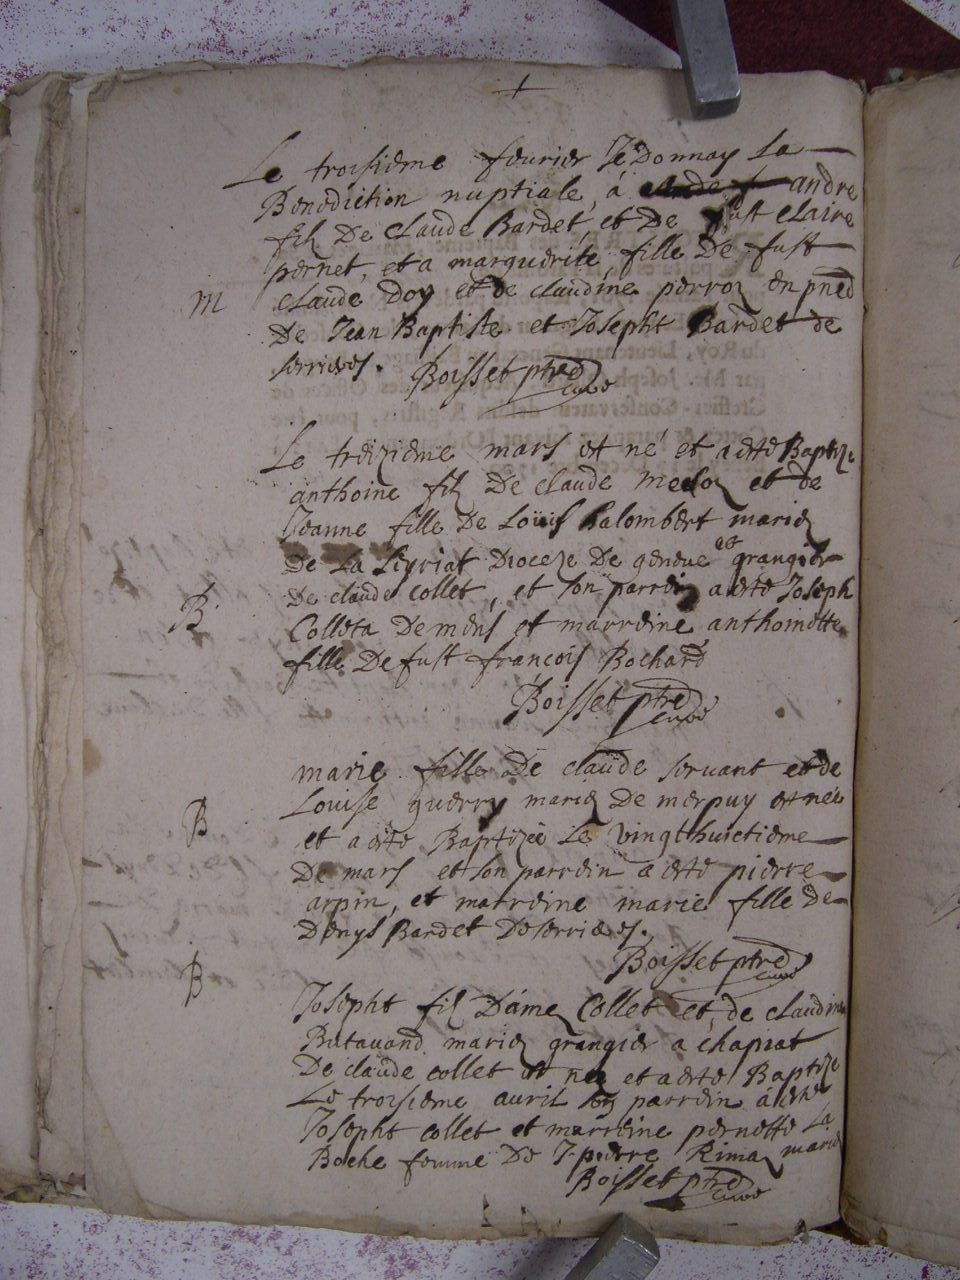 Le troisieme feurier Jé Donnay La
Benediction nuptiale, á andre
filz De claude Bardet et De fust claire
pernet, et a marguerite fille De fust
M claude Doy et de claudine perroz en pned
De Jean Baptiste et Josepht Bardet de
serrieres. Boisset ptre curé
Le treizieme mars est né et a esté Baptize
anthoine filz De claude et de
Jeanne fille De Loüis kalombert mariez
De La Leyriat Dioceze De geneue et grangier
De claude collet, et son parrein a esté Joseph
B Colleta De mens et marreine anthoinette
fille De fust francois Bochard
Boisset ptre curé
marie fille De claude seruant et de
B Louise guerry mariez De merpuy est née
et a esté Baptizée Le vingthuictieme
De mars et son parrein a esté pierre
arpin, et marreine marie fille de
Denys Bardet De serrieres.
Boisset ptre curé
B Josepht filz D'amez Collet et de claudine
Butauand mariez grangier a chapiat
De claude collet est nez et a esté Baptize
Le troisieme auril son parrein á esté
Josepht collet et marreine pernette La
Boche femme De J-pierre Rimaz mariez
Boisset ptre curé